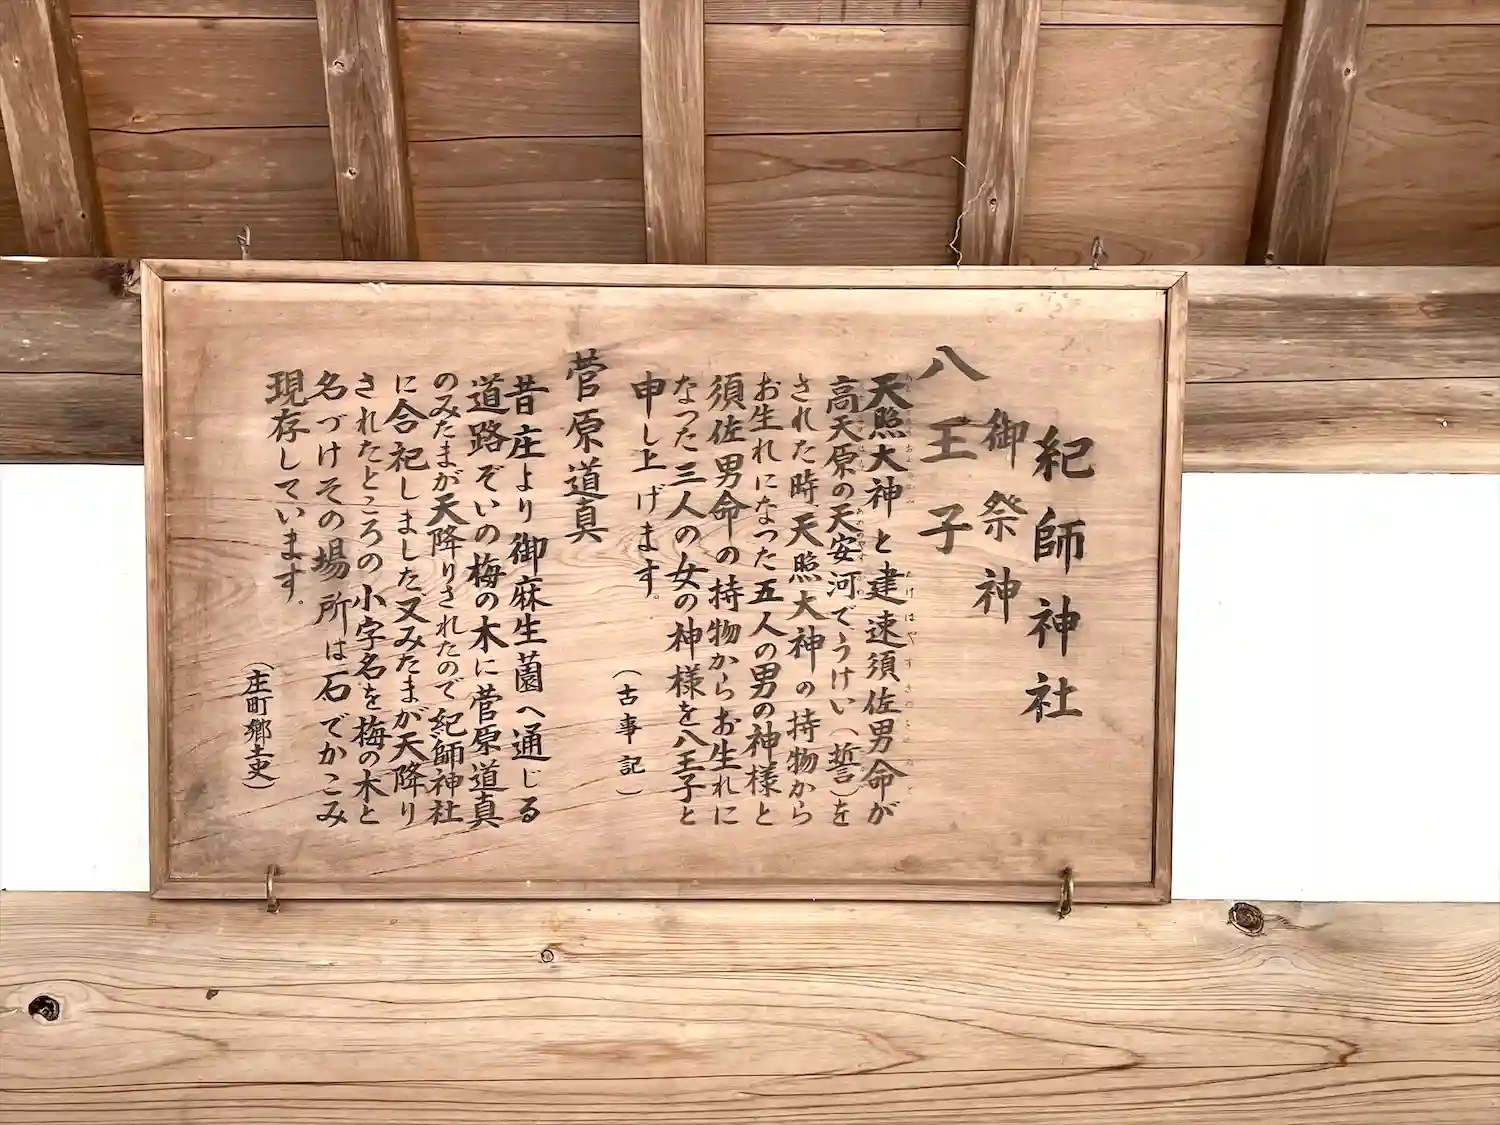 紀師神社
御祭神
八王子
天照大神と建速須佐男命が
高天原の天安河でうけい(誓)を
された時、天照大神の持物から
お生れになった五人の男の神様と
須佐男命の持物からお生れに
なった三人の女の神様を八王子と
申し上げます。
(古事記)
菅原道真
昔庄より御麻生薗へ通じる
道路ぞいの梅の木に菅原道真
のみたまが天降りされたので紀師神社
に合祀しました又みたまが天降り
されたところの小字名を梅の木と
名づけその場所は石でかこみ
現存しています。
(庄町郷土史)